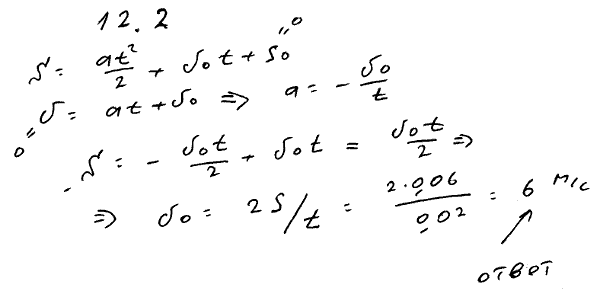 12.2
S = at²/2 + v₀t + S₀ "0
0" v = at + v₀ ⇒ a = - v₀/t
S = - v₀t/2 + v₀t = v₀t/2 ⇒
⇒ v₀ = 2S/t = 2·0,06/0,02 = 6 м/с
ответ